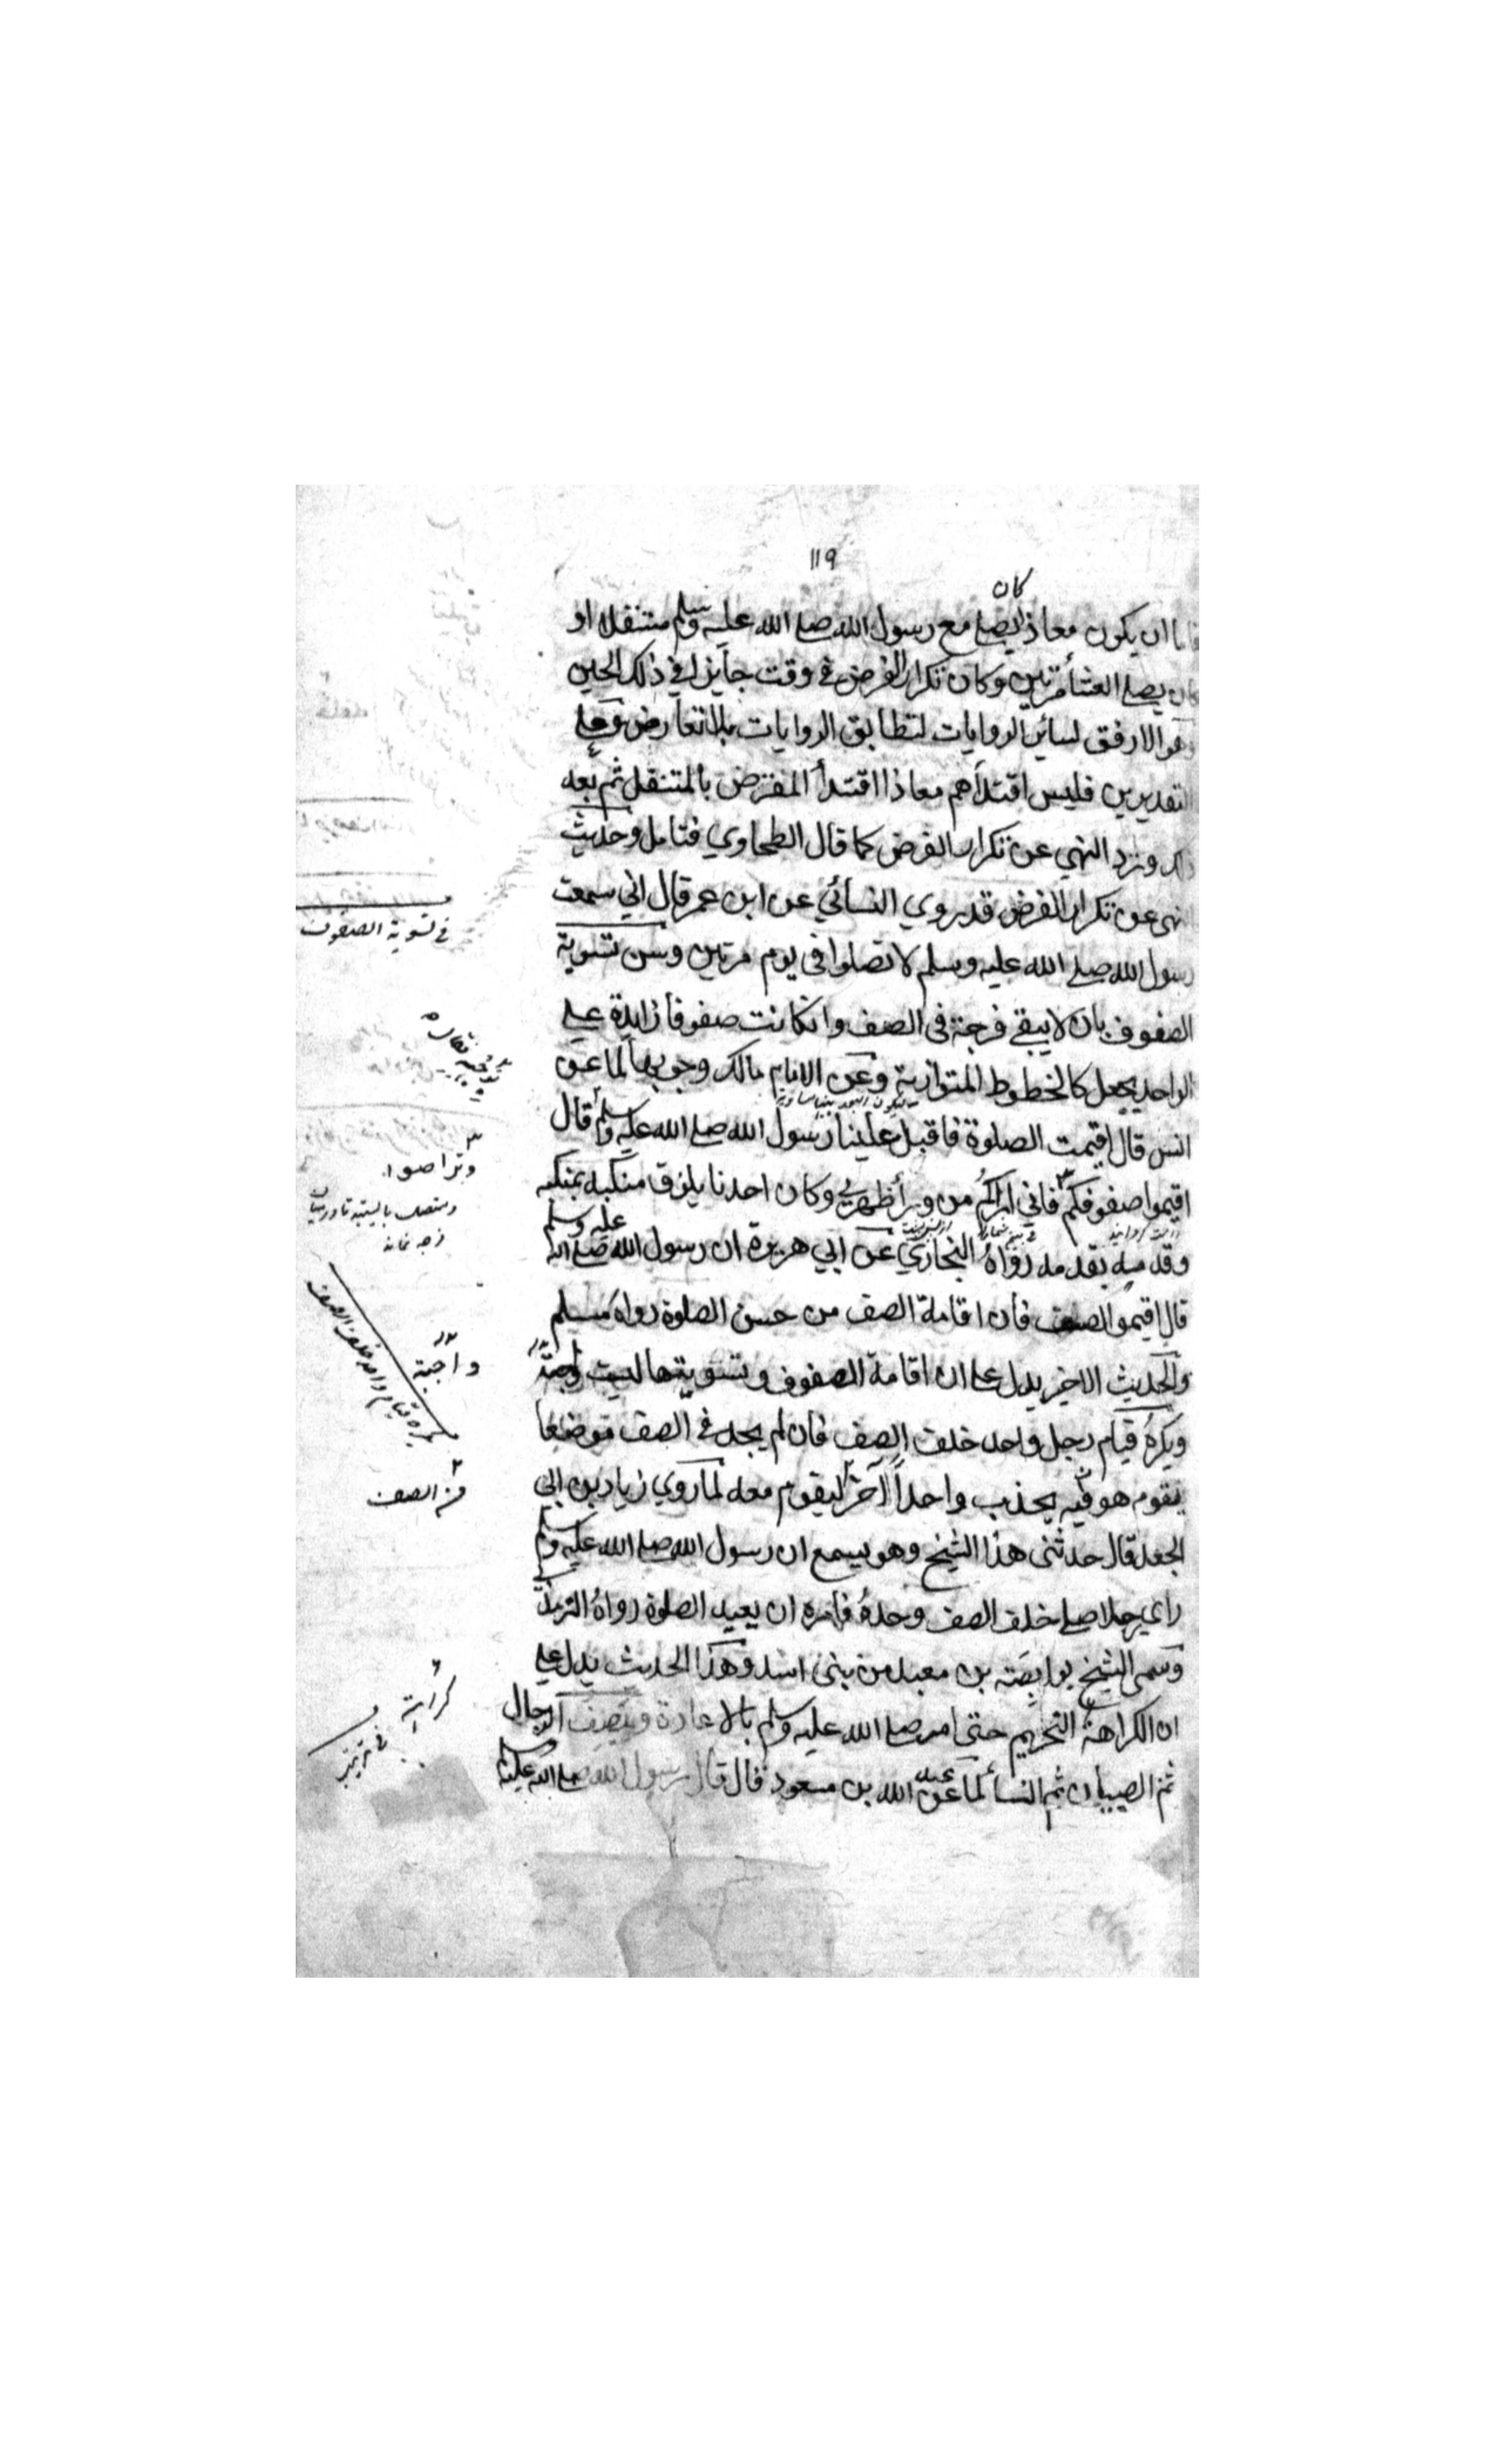 ١١٩
كان
اما ان يكون معاذ يصلي مع رسول الله صلى الله عليه وسلم متنفلا او
كان يصلي العشأ مرتين وكان تكرار الفرض في وقت جايزا في ذلك الحين
وهو الارفق لسائر الروايات لتطابق الروايات بلا تعارض وعلي
التقديرين فليس اقتدأهم معاذا اقتدأ المفترض بالمتنفل ثم بعد
ذلك ورد النهي عن تكرار الفرض كما قال الطحاوي فتامل وحديث
نهي عن تكرار الفرض قد روي النسائي عن ابن عمر قال اني سمعت
رسول الله صلى الله عليه وسلم لا تصلوا في يوم مرتين وسن تسوية
الصفوف بان لا يبقي فرجة في الصف وان كانت صفوفا زايدة علي
الواحد يجعل كالخطوط المتوازية وعن الامام مالك وجوبها لما عن
انس قال اقيمت الصلوة فاقبل علينا رسول الله صلى الله عليه وسلم قال
اقيموا صفوفكم فاني اراكم من ورأ ظهري وكان احدنا يلزق منكبه بمنكبه
وقدميه بقدمه رواه البخاري عن ابي هريرة ان رسول الله صلى الله عليه وسلم
قال اقيموا الصف فان اقامة الصف من حسن الصلوة رواه مسلم
والحديث الاخير يدل على ان اقامة الصفوف وتسويتها ليست واجبة
ويكره قيام رجل واحد خلف الصف فان لم يجد في الصف موضعا
يقوم هو فيه يجذب واحداً آخر ليقوم معه لما روي زياد بن ابي
الجعد قال حدثني هذا الشيخ وهو يسمع ان رسول الله صلى الله عليه وسلم
راي رجلا صلى خلف الصف وحده فامره ان يعيد الصلوة رواه الترمذي
وسمى الشيخ بوابصة بن معبد من بني اسد وهذا الحديث يدل علي
ان الكراهة التحريم حتى امر صلى الله عليه وسلم بالاعادة ويصف الرجال
ثم الصبيان ثم النسأ لما عن عبد الله بن مسعود قال قال رسول الله صلى الله عليه
في تسوية الصفوف
وتراصوا
واجبة
يكره قيام واحد خلف الصف
من الصف
كراهة
في ترتيب